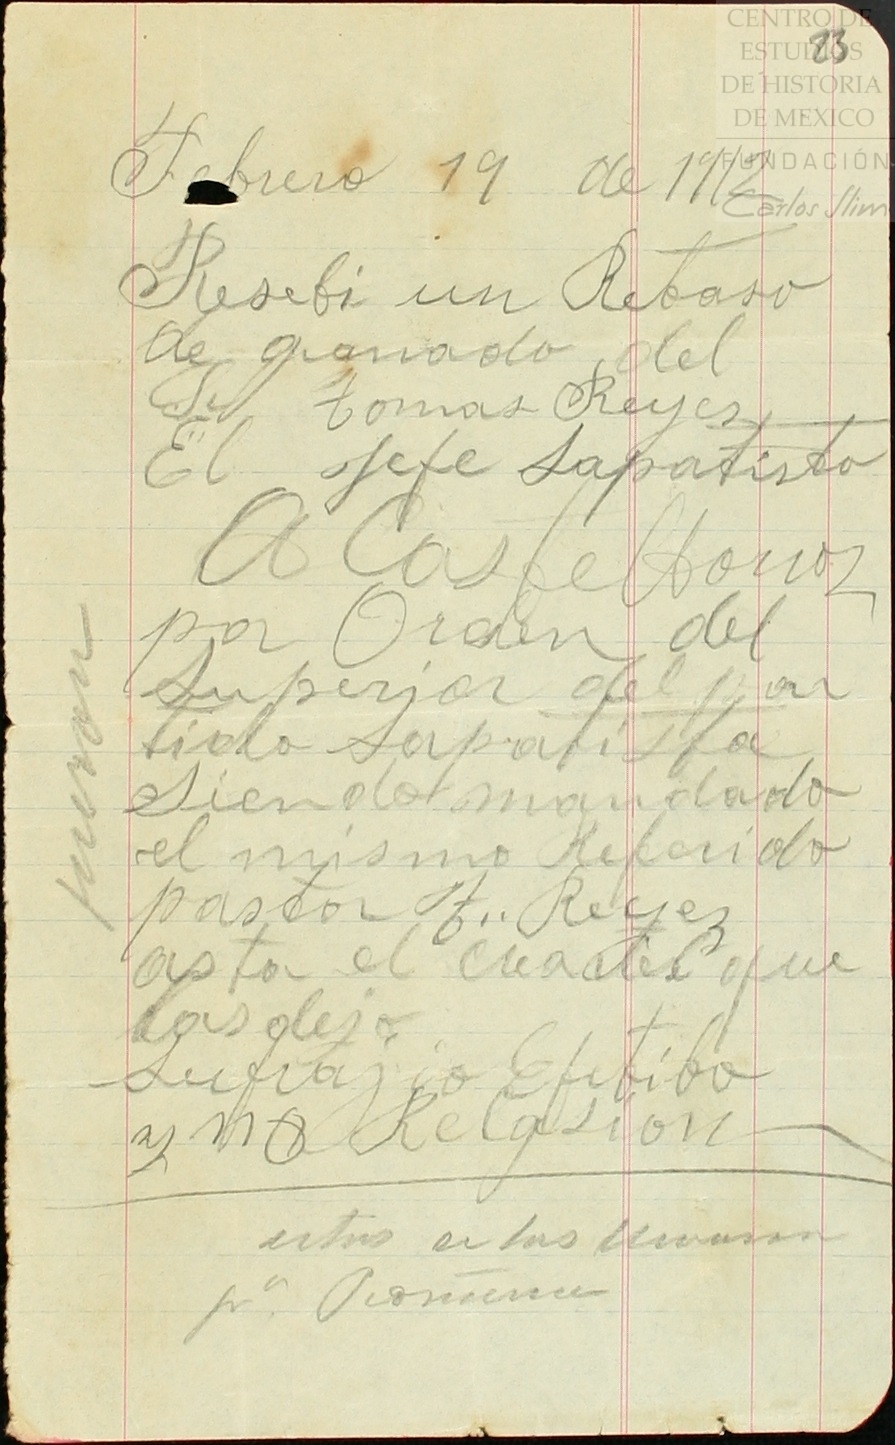 CENTRO DE
ESTUDIOS
DE HISTORIA
DE MEXICO
FUNDACIÓN
Carlos Slim
23
Febrero 19 de 1912
Resebi un Rebaso
de ganado del
Sr tomas Reyes
El Jefe Sapatisto
A Casfelloroz
por Orden del
Superior del par
tido Sapatista
siendo mandado
el mismo Referido
pastor T.. Reyes
asta el cuartel que
las dejo
Sufrajio Efetibo
y no Relesion
estos se las llevaron
pª.